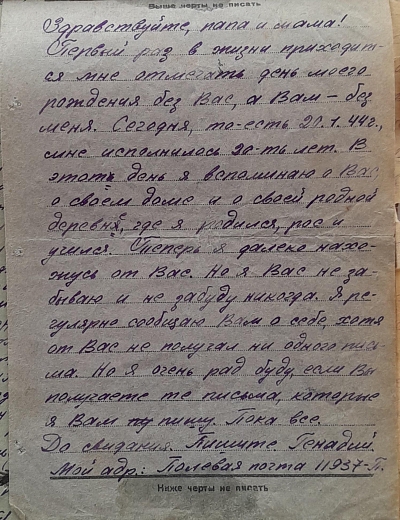 Выше черты не писать
Здравствуйте, папа и мама!
Первый раз в жизни приходит-
ся мне отмечать день моего
рождения без Вас, а Вам – без
меня. Сегодня, то-есть 21.1.44г.,
мне исполнилось 20-ть лет. В
этот день я вспоминаю о Вас,
о своём доме и о своей родной
деревне, где я родился, рос и
учился. Теперь я далеко нахо-
жусь от Вас. Но я Вас не за-
бываю и не забуду никогда. Я ре-
гулярно сообщаю Вам о себе, хотя
от Вас не получал ни одного пись-
ма. Но я очень рад буду, если Вы
получаете те письма, которые
я Вам пишу. Пока все.
До свидания. Пишите. Генадий.
Мой адр.: Полевая почта 11937-П.
Ниже черты не писать